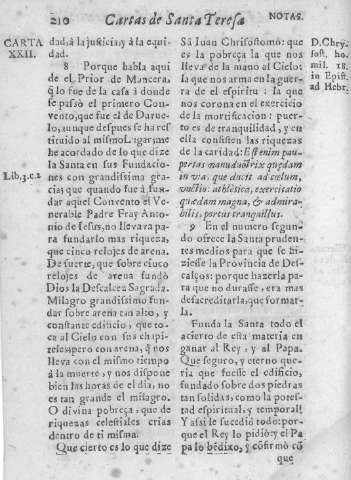 210 Cartas de Santa Teresa
NOTAS.
CARTA
XXII.
dad, à la justicia, y à la equi-
dad.
8 Porque habla aqui
de el Prior de Mancera,
q̃ lo fue de la casa à donde
se passò el primero Conven-
vento, que fue el de Darue-
lo, aunque despues se ha res-
tituido al mismo lugar; me
he acordado de lo que dize
la Santa en sus Fundacio-
Lib. 3. c. 2
nes con grandissima gra-
cia; que quando fue à fun-
dar aquel Convento el Ve-
nerable Padre Fray Anto-
nio de Iesus, no llevava pa-
ra fundarlo mas riqueza,
que cinco relojes de arena.
De suerte, que sobre cinco
relojes de arena fundò
Dios la Descalcez Sagrada.
Milagro grandissimo fun-
dar sobre arena tan alto, y
constante edificio, que to-
ca al Cielo con sus chapi-
teles; pero con arena, q̃ nos
lleva con el mismo tiempo
à la muerte, y nos dispone
bien las horas de el dia, no
es tan grande el milagro.
O divina pobreça, que de
riquezas celestiales crias
dentro de ti misma!
Que cierto es lo que dize
Sã Iuan Chrisostomo: que
es la pobreça la que nos
lleva de la mano al Cielo:
la que nos arma en la guer-
ra de el espiritu: la que
nos corona en el exercicio
de la mortificacion: puer-
to es de tranquilidad, y en
ella consisten las riquezas
de la caridad: Est enim pau-
pertas manuductrix quædam
in via, quæ ducit ad cœlum,
unctio athletica, exercitatio
quædam magna, & admira-
bilis, portus tranquillus.
D. Chry-
sost. ho-
mil. 18.
in Epist.
ad Hebr.
9 En el numero segun-
do ofrece la Santa pruden-
tes medios para que se hi-
ziesse la Provincia de Des-
calços: porque hazerla pa-
ra que no durasse, era mas
desacreditarla, que formar-
la.
Funda la Santa todo el
acierto de esta materia en
ganar al Rey, y al Papa.
Que seguro, y eterno que-
ria que fuesse el edificio,
fundado sobre dos piedras
tan solidas, como la potes-
tad espiritual, y temporal!
Y assi le sucediò todo: por-
que el Rey lo pidiò: y el Pa
pa lo bẽdixo, y cõfirmò cõ
que